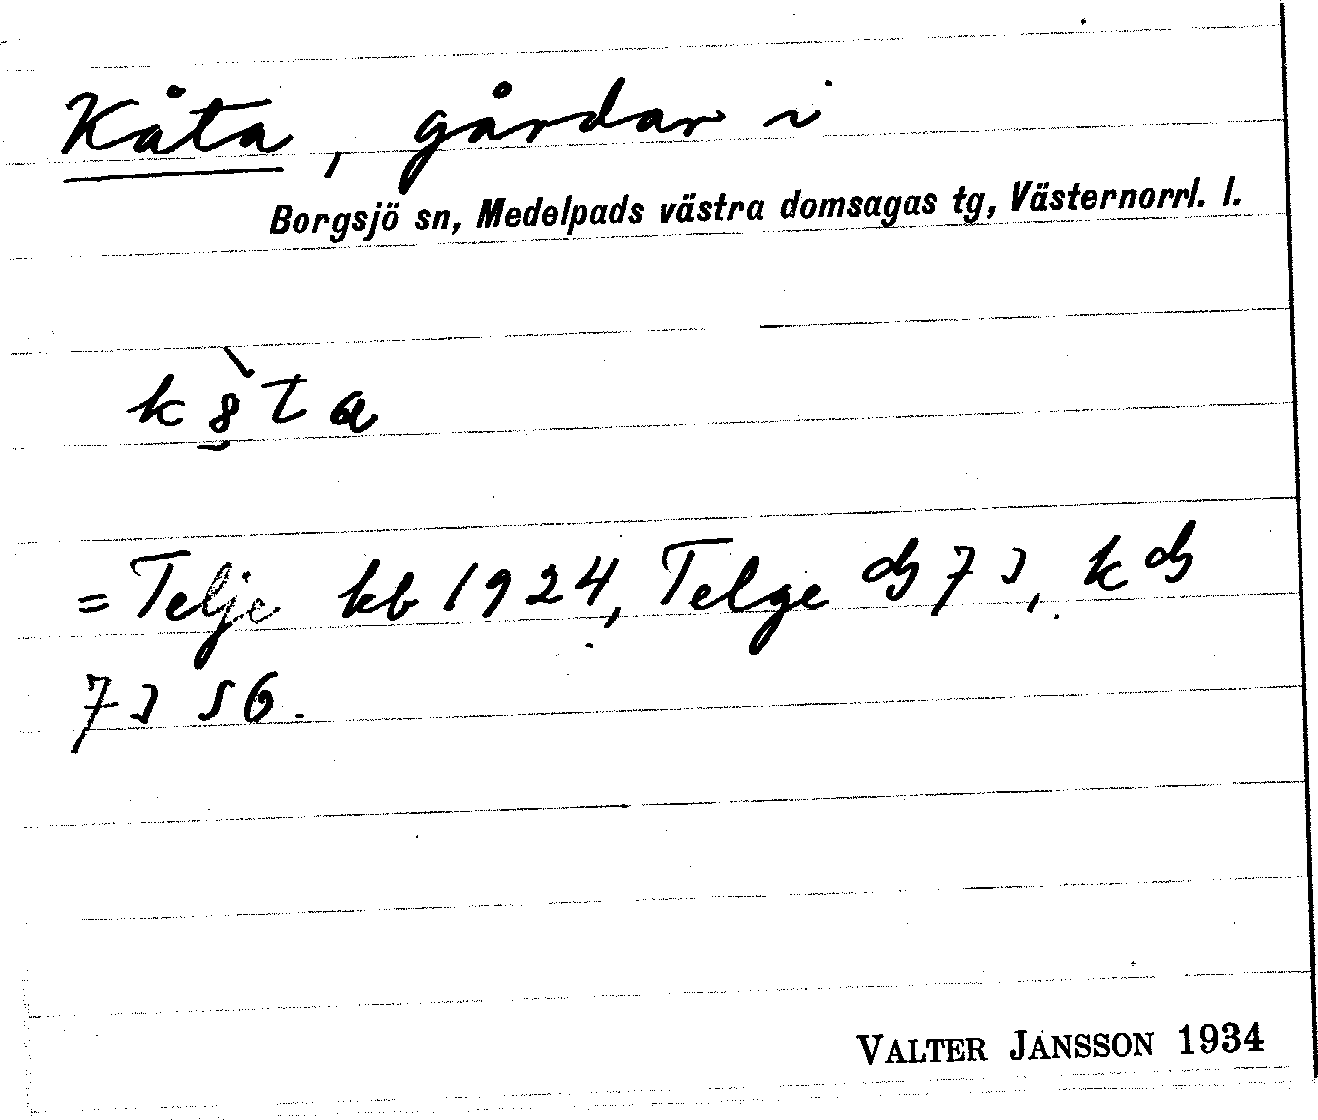 Kåta, gårdar i
Borgsjö sn, Medelpads västra domsagas tg, Västernorrl. l.
= Telje kb 1924, Telge
56.
VALTER JANSSON 1934